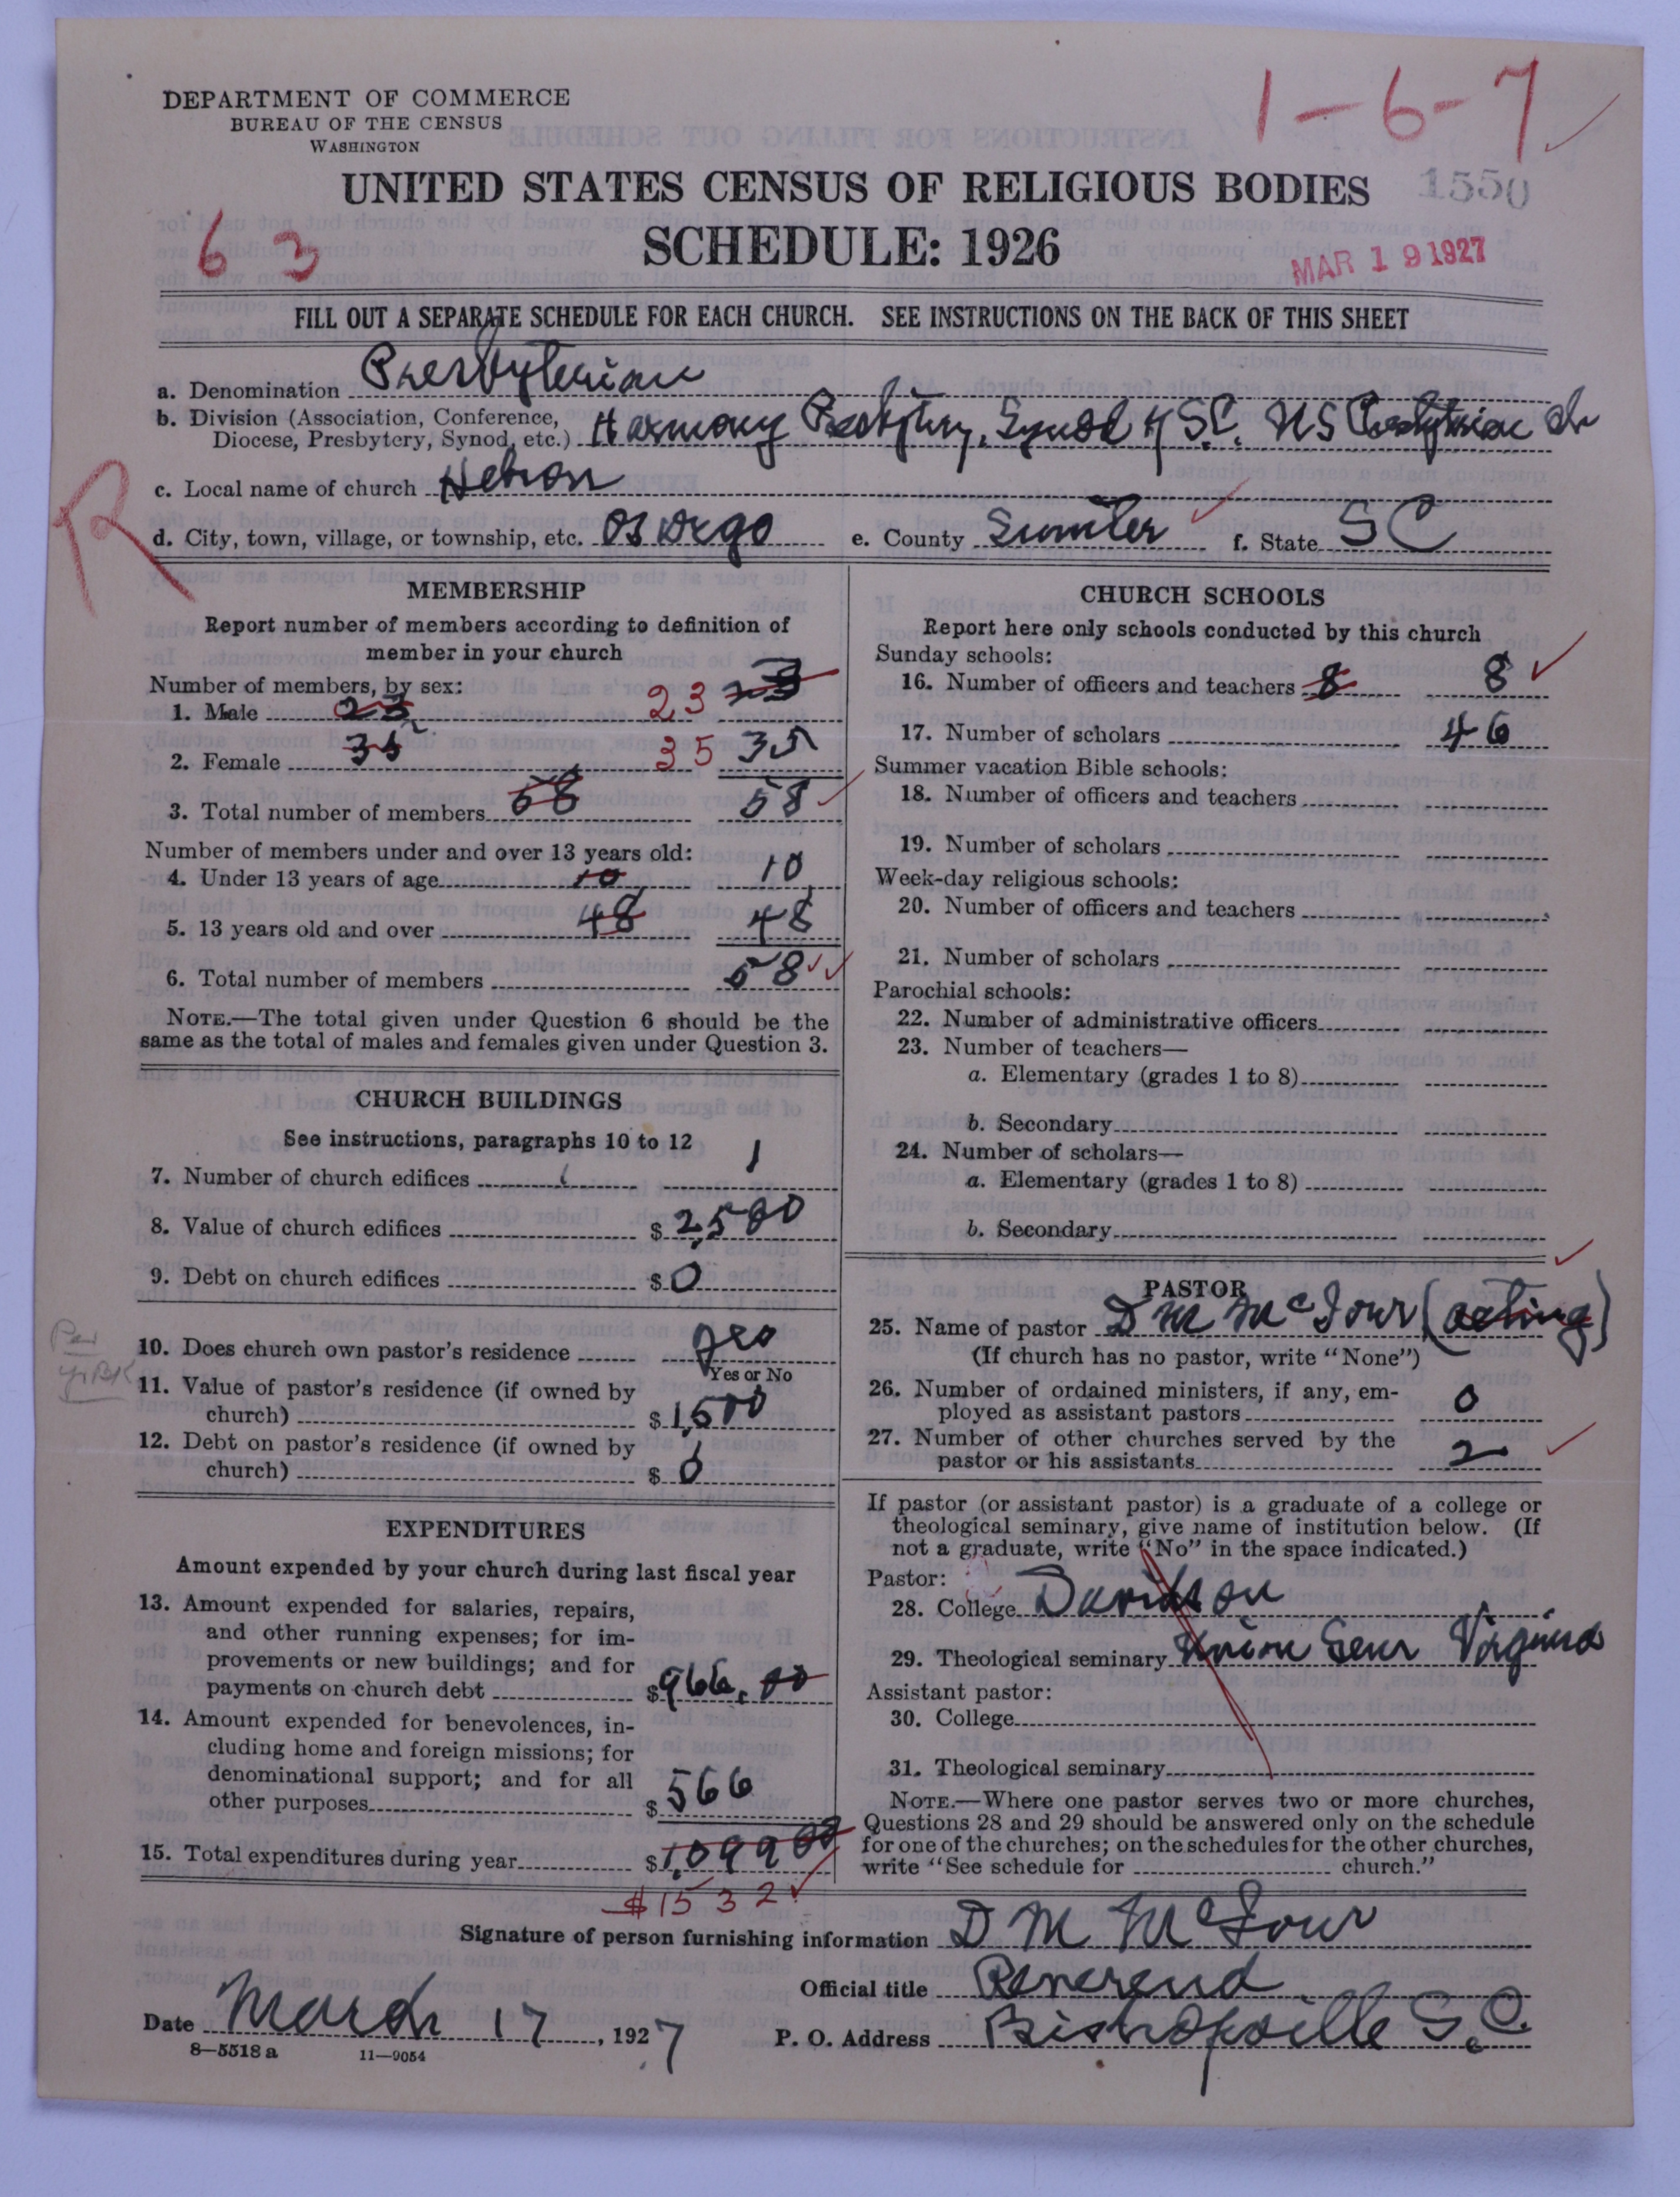 1-6-7
DEPARTMENT OF COMMERCE
BUREAU OF THE CENSUS
WASHINGTON
UNITED STATES CENSUS OF RELIGIOUS BODIES
1550
63
SCHEDULE: 1926
MAR 19 1927
FILL OUT A SEPARATE SCHEDULE FOR EACH CHURCH. SEE INSTRUCTIONS ON THE BACK OF THIS SHEET
a. Denomination Presbyterian
b. Division (Association, Conference,
Diocese, Presbytery, Synod, etc.) Harmony Presbytery, Synod of S.C. US Presbyterian Ch
R
c. Local name of church Hebron
d. City, town, village, or township, etc. Oswego e. County Sumter f. State S C
MEMBERSHIP
Report number of members according to definition of
member in your church
Number of members, by sex:
1. Male 23 23 23
2. Female 35 35 35
3. Total number of members 58 58
Number of members under and over 13 years old:
4. Under 13 years of age 10 10
5. 13 years old and over 48 48
6. Total number of members 58
NOTE.—The total given under Question 6 should be the
same as the total of males and females given under Question 3.
CHURCH BUILDINGS
See instructions, paragraphs 10 to 12
7. Number of church edifices 1 1
8. Value of church edifices $ 2,500
9. Debt on church edifices $ 0
Per
yr BK
10. Does church own pastor's residence yes
Yes or No
11. Value of pastor's residence (if owned by
church) $ 1,500
12. Debt on pastor's residence (if owned by
church) $ 0
EXPENDITURES
Amount expended by your church during last fiscal year
13. Amount expended for salaries, repairs,
and other running expenses; for im-
provements or new buildings; and for
payments on church debt $ 966.00
14. Amount expended for benevolences, in-
cluding home and foreign missions; for
denominational support; and for all
other purposes $ 566
15. Total expenditures during year $ 1,099 00
$1532
CHURCH SCHOOLS
Report here only schools conducted by this church
Sunday schools:
16. Number of officers and teachers 8 8
17. Number of scholars 46
Summer vacation Bible schools:
18. Number of officers and teachers
19. Number of scholars
Week-day religious schools:
20. Number of officers and teachers
21. Number of scholars
Parochial schools:
22. Number of administrative officers
23. Number of teachers—
a. Elementary (grades 1 to 8)
b. Secondary
24. Number of scholars—
a. Elementary (grades 1 to 8)
b. Secondary
PASTOR
25. Name of pastor D M McIour (acting)
(If church has no pastor, write "None")
26. Number of ordained ministers, if any, em-
ployed as assistant pastors 0
27. Number of other churches served by the
pastor or his assistants 2
If pastor (or assistant pastor) is a graduate of a college or
theological seminary, give name of institution below. (If
not a graduate, write "No" in the space indicated.)
Pastor:
28. College Davidson
29. Theological seminary Union Sem Virginia
Assistant pastor:
30. College
31. Theological seminary
NOTE.—Where one pastor serves two or more churches,
Questions 28 and 29 should be answered only on the schedule
for one of the churches; on the schedules for the other churches,
write "See schedule for church."
Signature of person furnishing information D M McIour
Official title Reverend
Date March 17, 1927 P. O. Address Bishopville S.C.
8—5518 a 11—9054